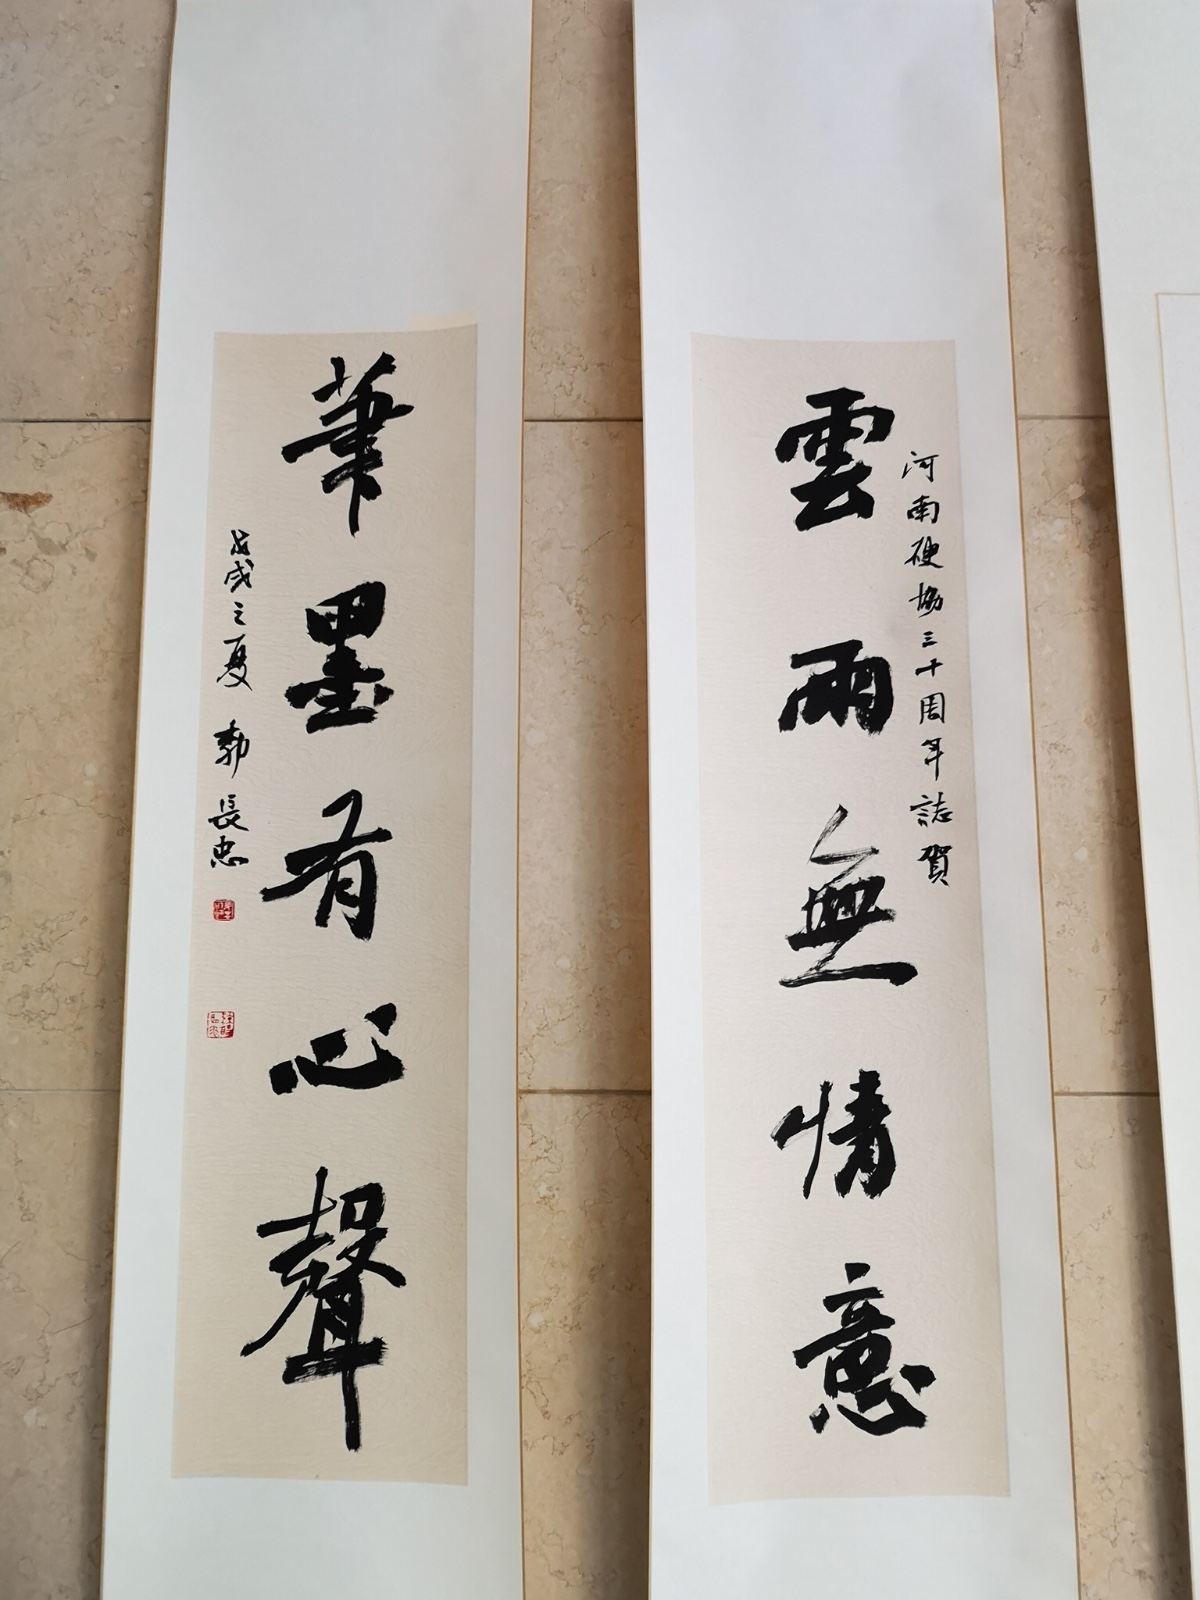 河南硬協三十周年誌賀
雲雨無情意
筆墨有心聲
戊戌之夏 郭長忠